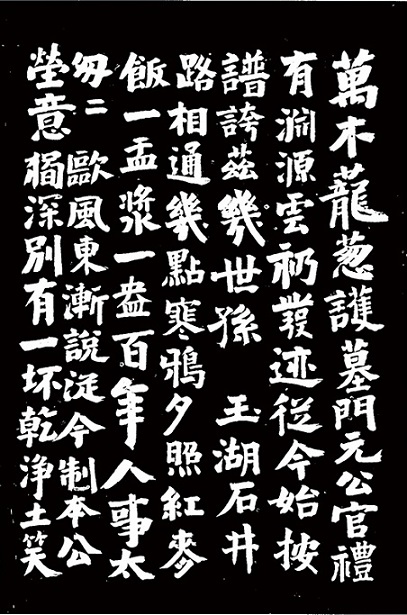 萬木蘢葱護墓門元公官禮
有淵源雲礽發迹從今始按
譜誇茲幾世孫 玉湖石井
路相通幾點寒鴉夕照紅麥
飯一盂漿一盎百年人事太
匆二 歐風東漸說從今制本公
塋意獨深別有一坏乾淨土笑